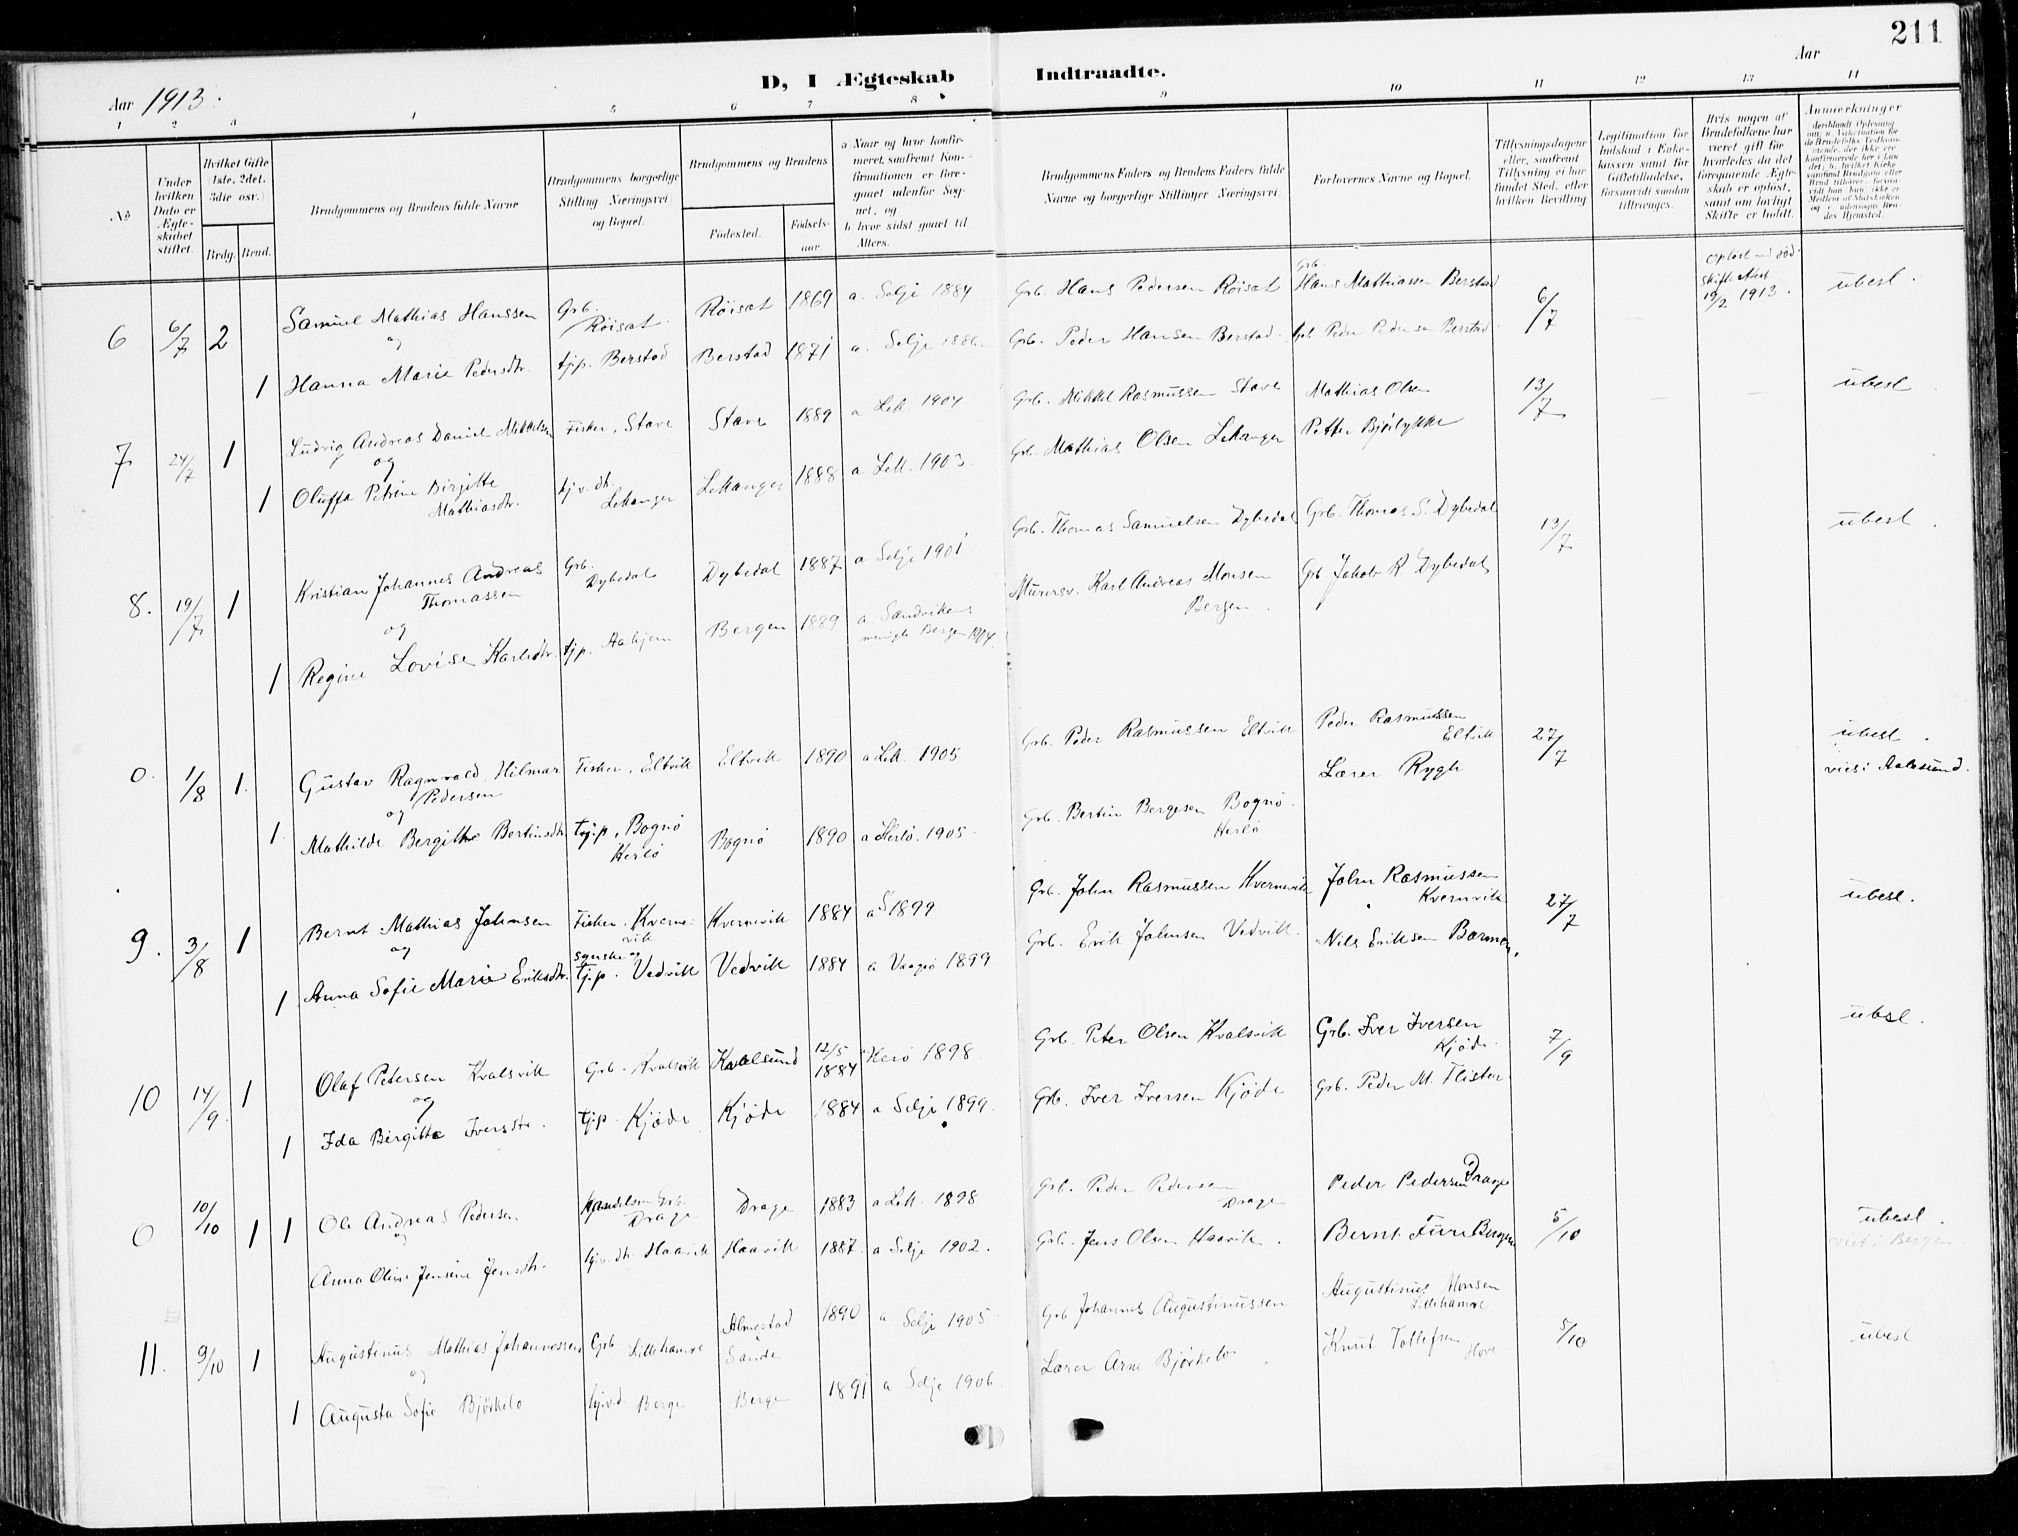 211
Aar 1913.
D, I Ægteskab Indtraadte.
Aar
1 2 3 4 5 6 7 8 9 10 11 12 13 14
No
Under hvilken Dato er Ægteskabet stiftet.
Hvilket Gifte 1ste, 2det, 3die osv.)
Brdg. Brud.
Brudgommens og Brudens fulde Navne
Brudgommens borgerlige Stilling Næringsvei og Bopæl.
Brudgommens og Brudens
Fødested. Fødselsaar.
a Naar og hvor konfirmeret, saafremt Konfirmationen er foregaaet udenfor Sognet, og
b hvor sidst gaaet til Alters.
Brudgommens Faders og Brudens Faders fulde Navne og borgerlige Stillinger Næringsvei.
Forlovernes Navne og Bopæl.
Tillysningsdagene eller, saafremt Tillysning ei har fundet Sted, efter hvilken Bevilling
Legitimation for Indskud i Enkekassen samt for Giftetilladelse, forsaavidt saadan tiltrænges.
Hvis nogen af Brudefolkene har været gift før hvorledes da det foregaaende Ægteskab er opløst, samt om lovligt Skifte er holdt.
Anmerkninger
6 6/7 2 Samuel Mathias Hanssen Grb. Röisat Röisat 1869 a. Selje 1884 Grb. Hans Pedersen Röisat Grb. Hans Mathiassen Berstad 6/7 Opløst ved død. skifte 19/2 1913. ubesl.
og
1 Hanna Marie Pedersdtr. tjp. Berstad Berstad 1871 a. Selje 1886. Grb. Peder Hansen Berstad. Grb. Peder Pedersen Berstad.
7 24/7 1 Ludvig Andreas Daniel Mikkelsen Fisker, Stave Stave 1889 a Lek. 1904 Grb. Mikkel Rasmussen Stave Mathias Olsen 13/7 ubesl
og
1 Oluffa Petrine Birgitte Mathiasdtr. tjv. dt. Lekanger Lekanger 1888 a Lek. 1903. Grb. Mathias Olsen Lekanger Petter Bjørlykke
8. 19/7 1 Kristian Johannes Andreas Thomassen Grb. Dybedal Dybedal 1887 a Selje 1901 Grb. Thomas Samuelsen Dybedal Grb. Thomas S. Dybedal 13/7 ubesl.
og
1 Regine Lovise Karlsdtr. tjp. Aahjem Bergen 1889 a. Sandvikens menigh Bergen 1904. Murersv. Karl Andreas Monsen Bergen. Grb Jakob R Dybedal
0. 1/8 1. Gustav Ragnvald Hilmar Pedersen Fisker, Eltvik Eltvik 1890 a Lek. 1905 Grb. Peder Rasmussen Eltvik Peder Rasmussen Eltvik 27/7 ubesl. vies i Aalesund.
og
1. Mathilde Bergithe Bertinsdtr. tjp. Bognö Herlö Bognö 1890 a Herlö. 1905. Grb. Bertin Bergesen Bognö. Herlö Lærer Rygh
9. 3/8 1 Bernt Mathias Johnsen Fisker. Kvernevik Kvernevik 1884 a S 1899 Grb. John Rasmussen Kvernevik John Rasmussen Kvernvik 27/7 ubesl.
og
1 Anna Sofie Marie Eriksdtr. syerske og tjp. Vedvik Vedvik 1884 a Vaagsö 1899 Grb. Erik Johnsen Vedvik. Nils Eriksen Barmen.
10 14/9. 1 Olaf Petersen Kvalsvik Grb. Kvalsvik Kvalsund 12/5 1884 Herö 1898. Grb. Peter Olsen Kvalsvik Grb. Iver Iversen Kjöde. 7/9 ubsl.
og
1 Ida Birgitta Iversdtr. tjp. Kjöde Kjöde 1884 a Selje 1899. Grb. Iver Iversen Kjöde Grb. Peder M. Flister
0 10/10 1 1 Ole Andreas Pedersen Handelsm Grb. Drage Drage 1883 a Lek. 1898 Grb. Peder Pedersen Drage Peder Pedersen Drage 5/10 ubesl. viet i Bergen.
og
Anna Oline Jensine Jensdtr. tjv. dt. Haavik Haavik 1887. a Selje 1902. Grb. Jens Olsen Haavik. Bernt Fure Bergen
11. 9/10 1 Augustinus Mathias Johannessen Grb. Lillehamre Almestad Sande 1890 a. Selje 1905. Grb Johannes Augustinussen Augustinus Monsen Lillehamre 5/10 ubesl
og
1 Augusta Sofie Björkelo Berge Berge 1891 a Selje 1906. Lærer Arne Björkelo. Knut Tollefsen Hove